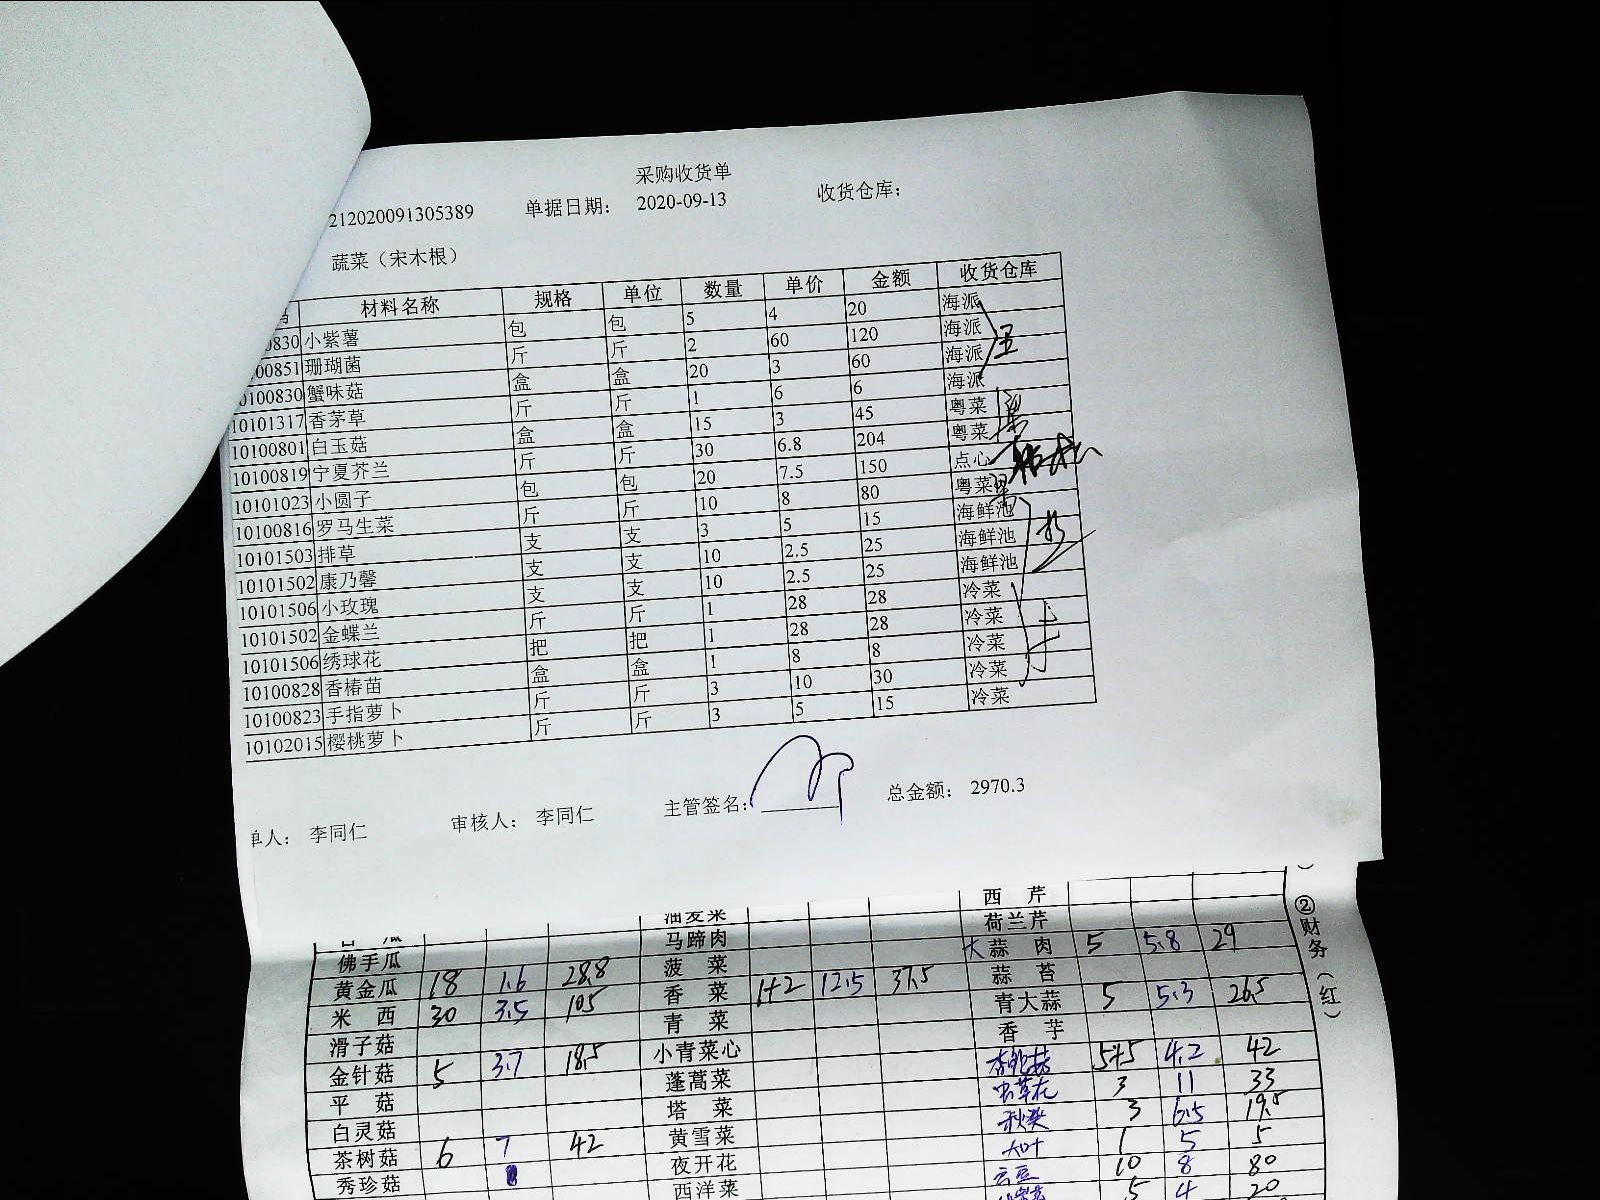 采购收货单
212020091305389 单据日期： 2020-09-13 收货仓库：
蔬菜（宋木根）
材料名称 规格 单位 数量 单价 金额 收货仓库
0830 小紫薯 包 包 5 4 20 海派
00851 珊瑚菌 斤 斤 2 60 120 海派
0100830 蟹味菇 盒 盒 20 3 60 海派
10101317 香茅草 斤 斤 1 6 6 海派
10100801 白玉菇 盒 盒 15 3 45 粤菜
10100819 宁夏芥兰 斤 斤 30 6.8 204 粤菜
10101023 小圆子 包 包 20 7.5 150 点心
10100816 罗马生菜 斤 斤 10 8 80 粤菜
10101503 排草 支 支 3 5 15 海鲜池
10101502 康乃馨 支 支 10 2.5 25 海鲜池
10101506 小玫瑰 支 支 10 2.5 25 海鲜池
10101502 金蝶兰 斤 斤 1 28 28 冷菜
10101506 绣球花 把 把 1 28 28 冷菜
10100828 香椿苗 盒 盒 1 8 8 冷菜
10100823 手指萝卜 斤 斤 3 10 30 冷菜
10102015 樱桃萝卜 斤 斤 3 5 15 冷菜
单人： 李同仁 审核人： 李同仁 主管签名： 总金额： 2970.3
油麦菜 西芹
马蹄肉 荷兰芹
佛手瓜 菠菜 大蒜肉 5 5.8 29
黄金瓜 18 1.6 28.8 香菜 1+2 12.5 37.5 蒜苔
米西 30 3.5 105 青菜 青大蒜 5 5.3 26.5
滑子菇 小青菜心 香芋
金针菇 5 3.7 18.5 蓬蒿菜 5+5 4.2 42
平菇 塔菜 虫草花 3 11 33
白灵菇 黄雪菜 秋葵 3 6.5 19.5
茶树菇 6 7 42 夜开花 大叶 1 5 5
秀珍菇 西洋菜 云豆 10 8 80
5 4 20
②财务（红）